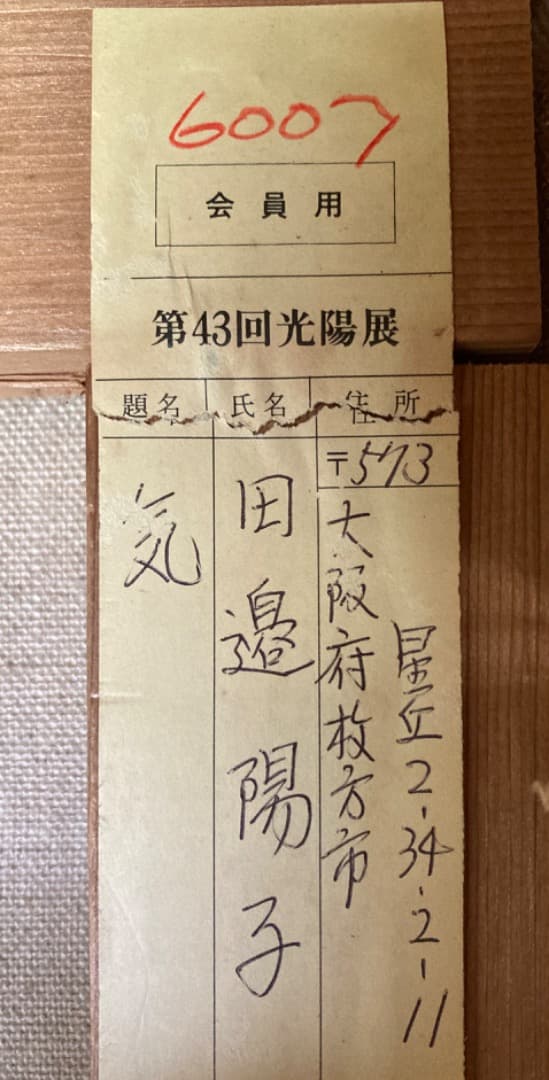 6007
会員用
第43回光陽展
住所
氏名
題名
〒573
大阪府枚方市
星丘2-34-2-11
田邉陽子
気